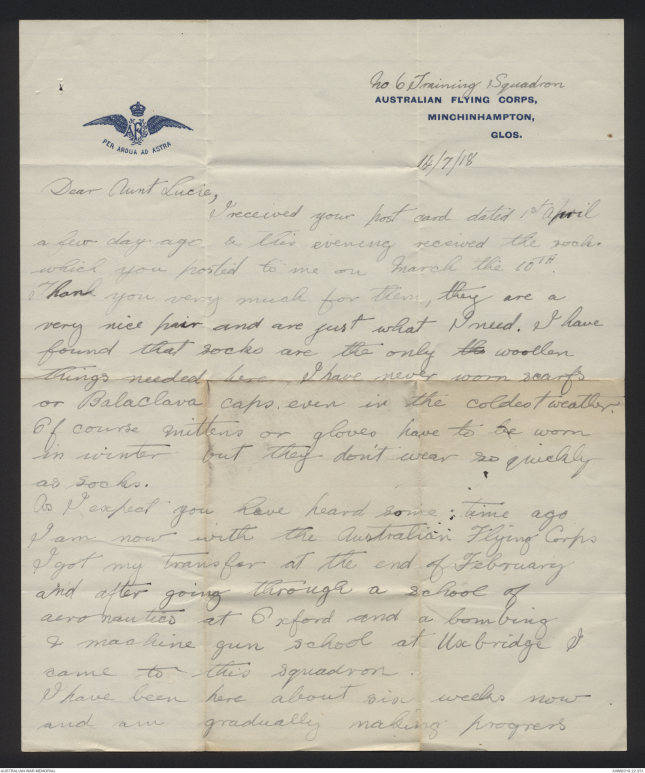 No 6 Training Squadron
AUSTRALIAN FLYING CORPS,
MINCHINHAMPTON,
GLOS.
AFC
PER ARDUA AD ASTRA
14/7/18
Dear Aunt Lucie,
I received your post card dated 1st April
a few day ago & this evening received the socks
which you posted to me on March the 10TH.
Thank you very much for them, they are a
very nice pair and are just what I need. I have
found that socks are the only woollen
things needed here, I have never worn scarfs
or Balaclava caps even in the coldest weather.
Of course mittens or gloves have to be worn
in winter but they don't wear so quickly
as socks.
As I expect you have heard some time ago
I am now with the Australian Flying Corps
I got my transfer at the end of February
and after going through a school of
aeronautics at Oxford and a bombing
& machine gun school at Uxbridge I
came to this squadron.
I have been here about six weeks now
and am gradually making progress
AUSTRALIAN WAR MEMORIAL